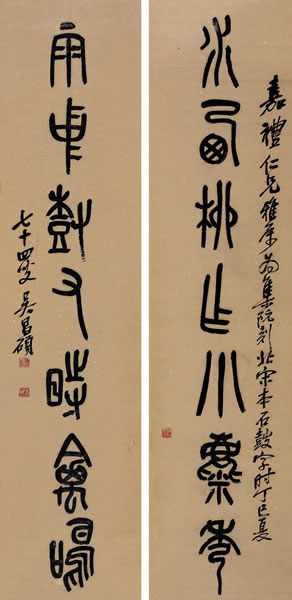 嘉禮仁兄雅屬為集阮刻北宋本石鼓字時丁巳夏
水西柳乍小
雨中樹又時禽鳴
七十四叟吳昌碩